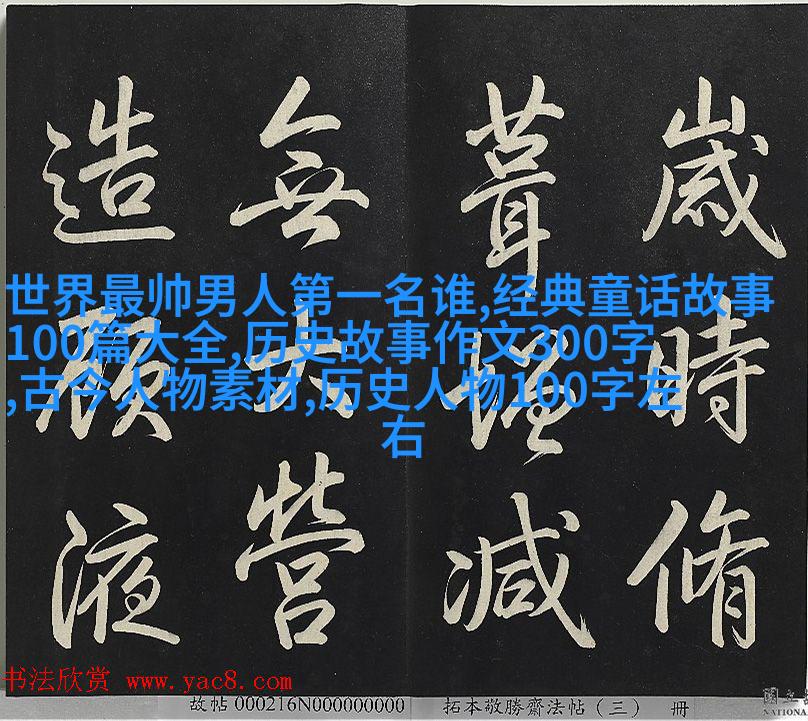 歲時脩
葺增減
無大營
造液
世界最帅男人第一名谁,经典童话故事
100篇大全,历史故事作文300字
,古今人物素材,历史人物100字左
右
书法欣赏 www.yac8.com
故帖 000216N000000000 拓本敬勝齋法帖（三） 冊
國立
NATIONA